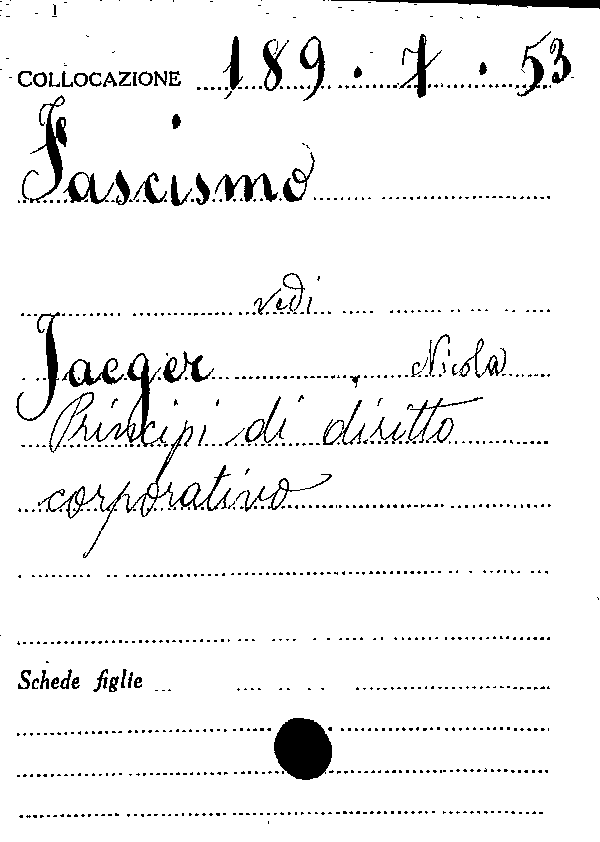 COLLOCAZIONE 189.7.53
Fascismo
vedi
Jaeger, Nicola
Principi di diritto
corporativo
Schede figlie